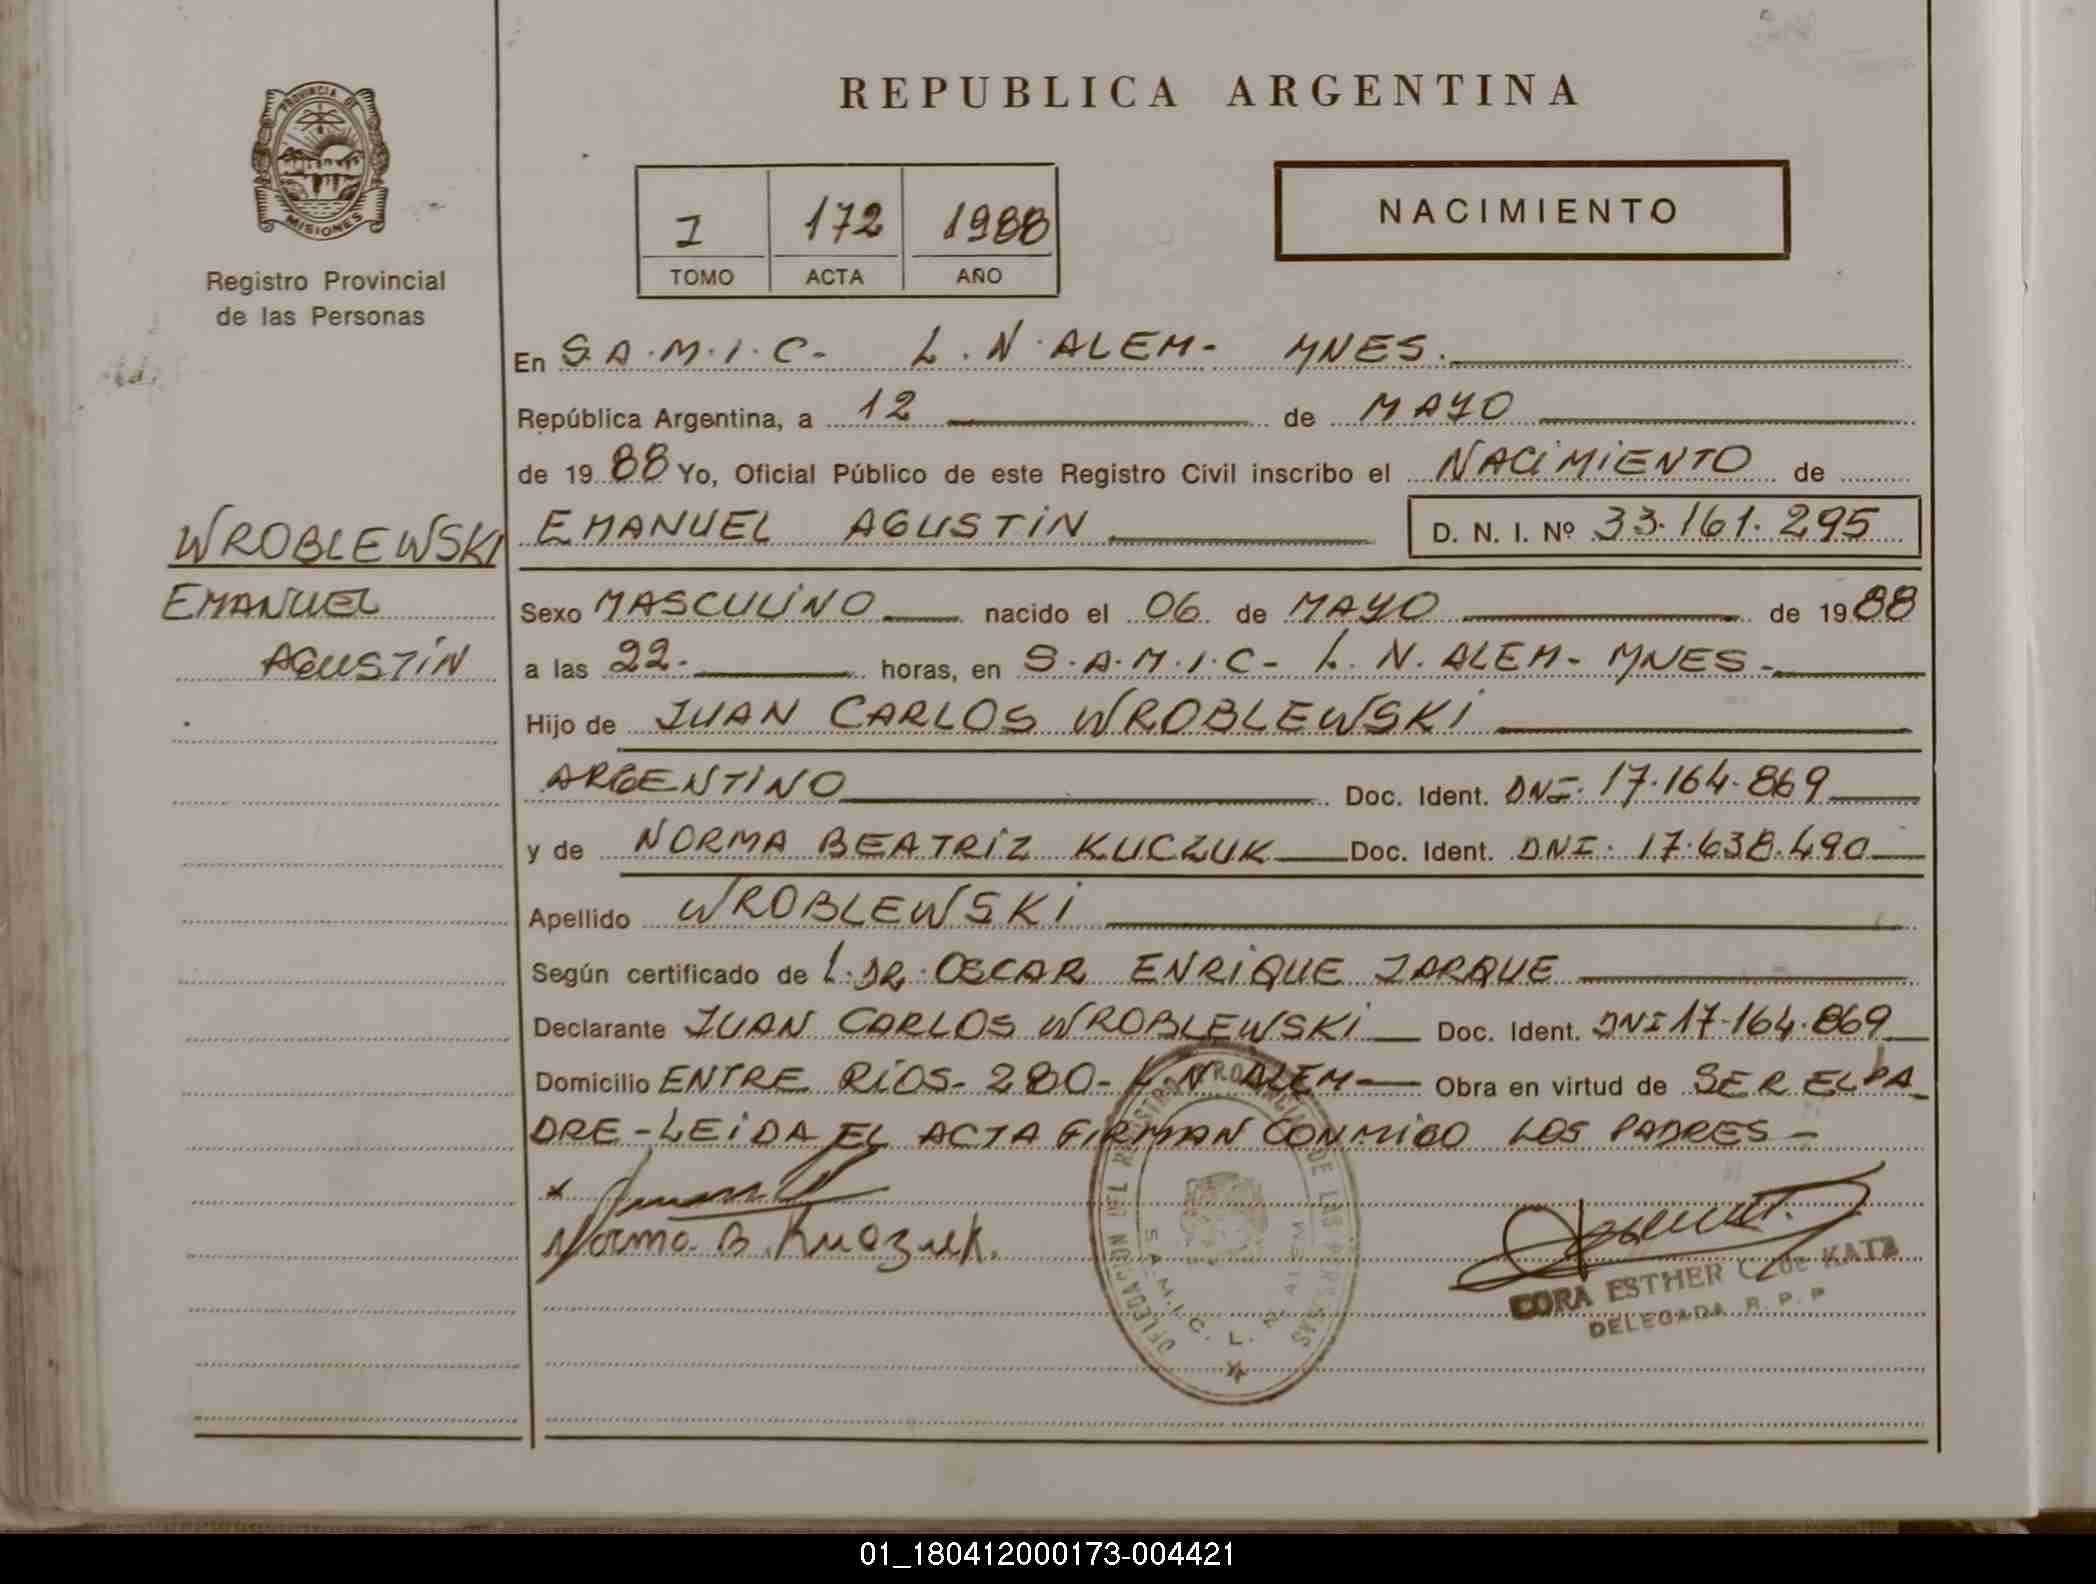 REPUBLICA ARGENTINA
PROVINCIA DE
MISIONES
Registro Provincial
de las Personas
I 172 1988
TOMO ACTA AÑO
NACIMIENTO
En S.A.M.I.C- L.N.ALEM- MNES.
República Argentina, a 12 de MAYO
de 1988 Yo, Oficial Público de este Registro Civil inscribo el NACIMIENTO de
WROBLEWSKI
EMANUEL
AGUSTIN
EMANUEL AGUSTIN D. N. I. Nº 33.161.295
Sexo MASCULINO nacido el 06 de MAYO de 1988
a las 22- horas, en S.A.M.I.C- L.N.ALEM- MNES-
Hijo de JUAN CARLOS WROBLEWSKI
ARGENTINO Doc. Ident. DNI. 17.164.869
y de NORMA BEATRIZ KUCZUK Doc. Ident. DNI. 17.638.490
Apellido WROBLEWSKI
Según certificado de L.DR. OSCAR ENRIQUE JARQUE
Declarante JUAN CARLOS WROBLEWSKI Doc. Ident. DNI 17.164.869
Domicilio ENTRE RIOS- 280- L.N ALEM- Obra en virtud de SER EL PA
DRE-LEIDA EL ACTA FIRMAN CONMIGO LOS PADRES-
Norma B. Kuczuk.
DELEGACION DEL REGISTRO PROVINCIAL DE LAS PERSONAS
S.A.M.I.C. L. N. ALEM
CORA ESTHER C. de KATZ
DELEGADA R. P. P
01_180412000173-004421